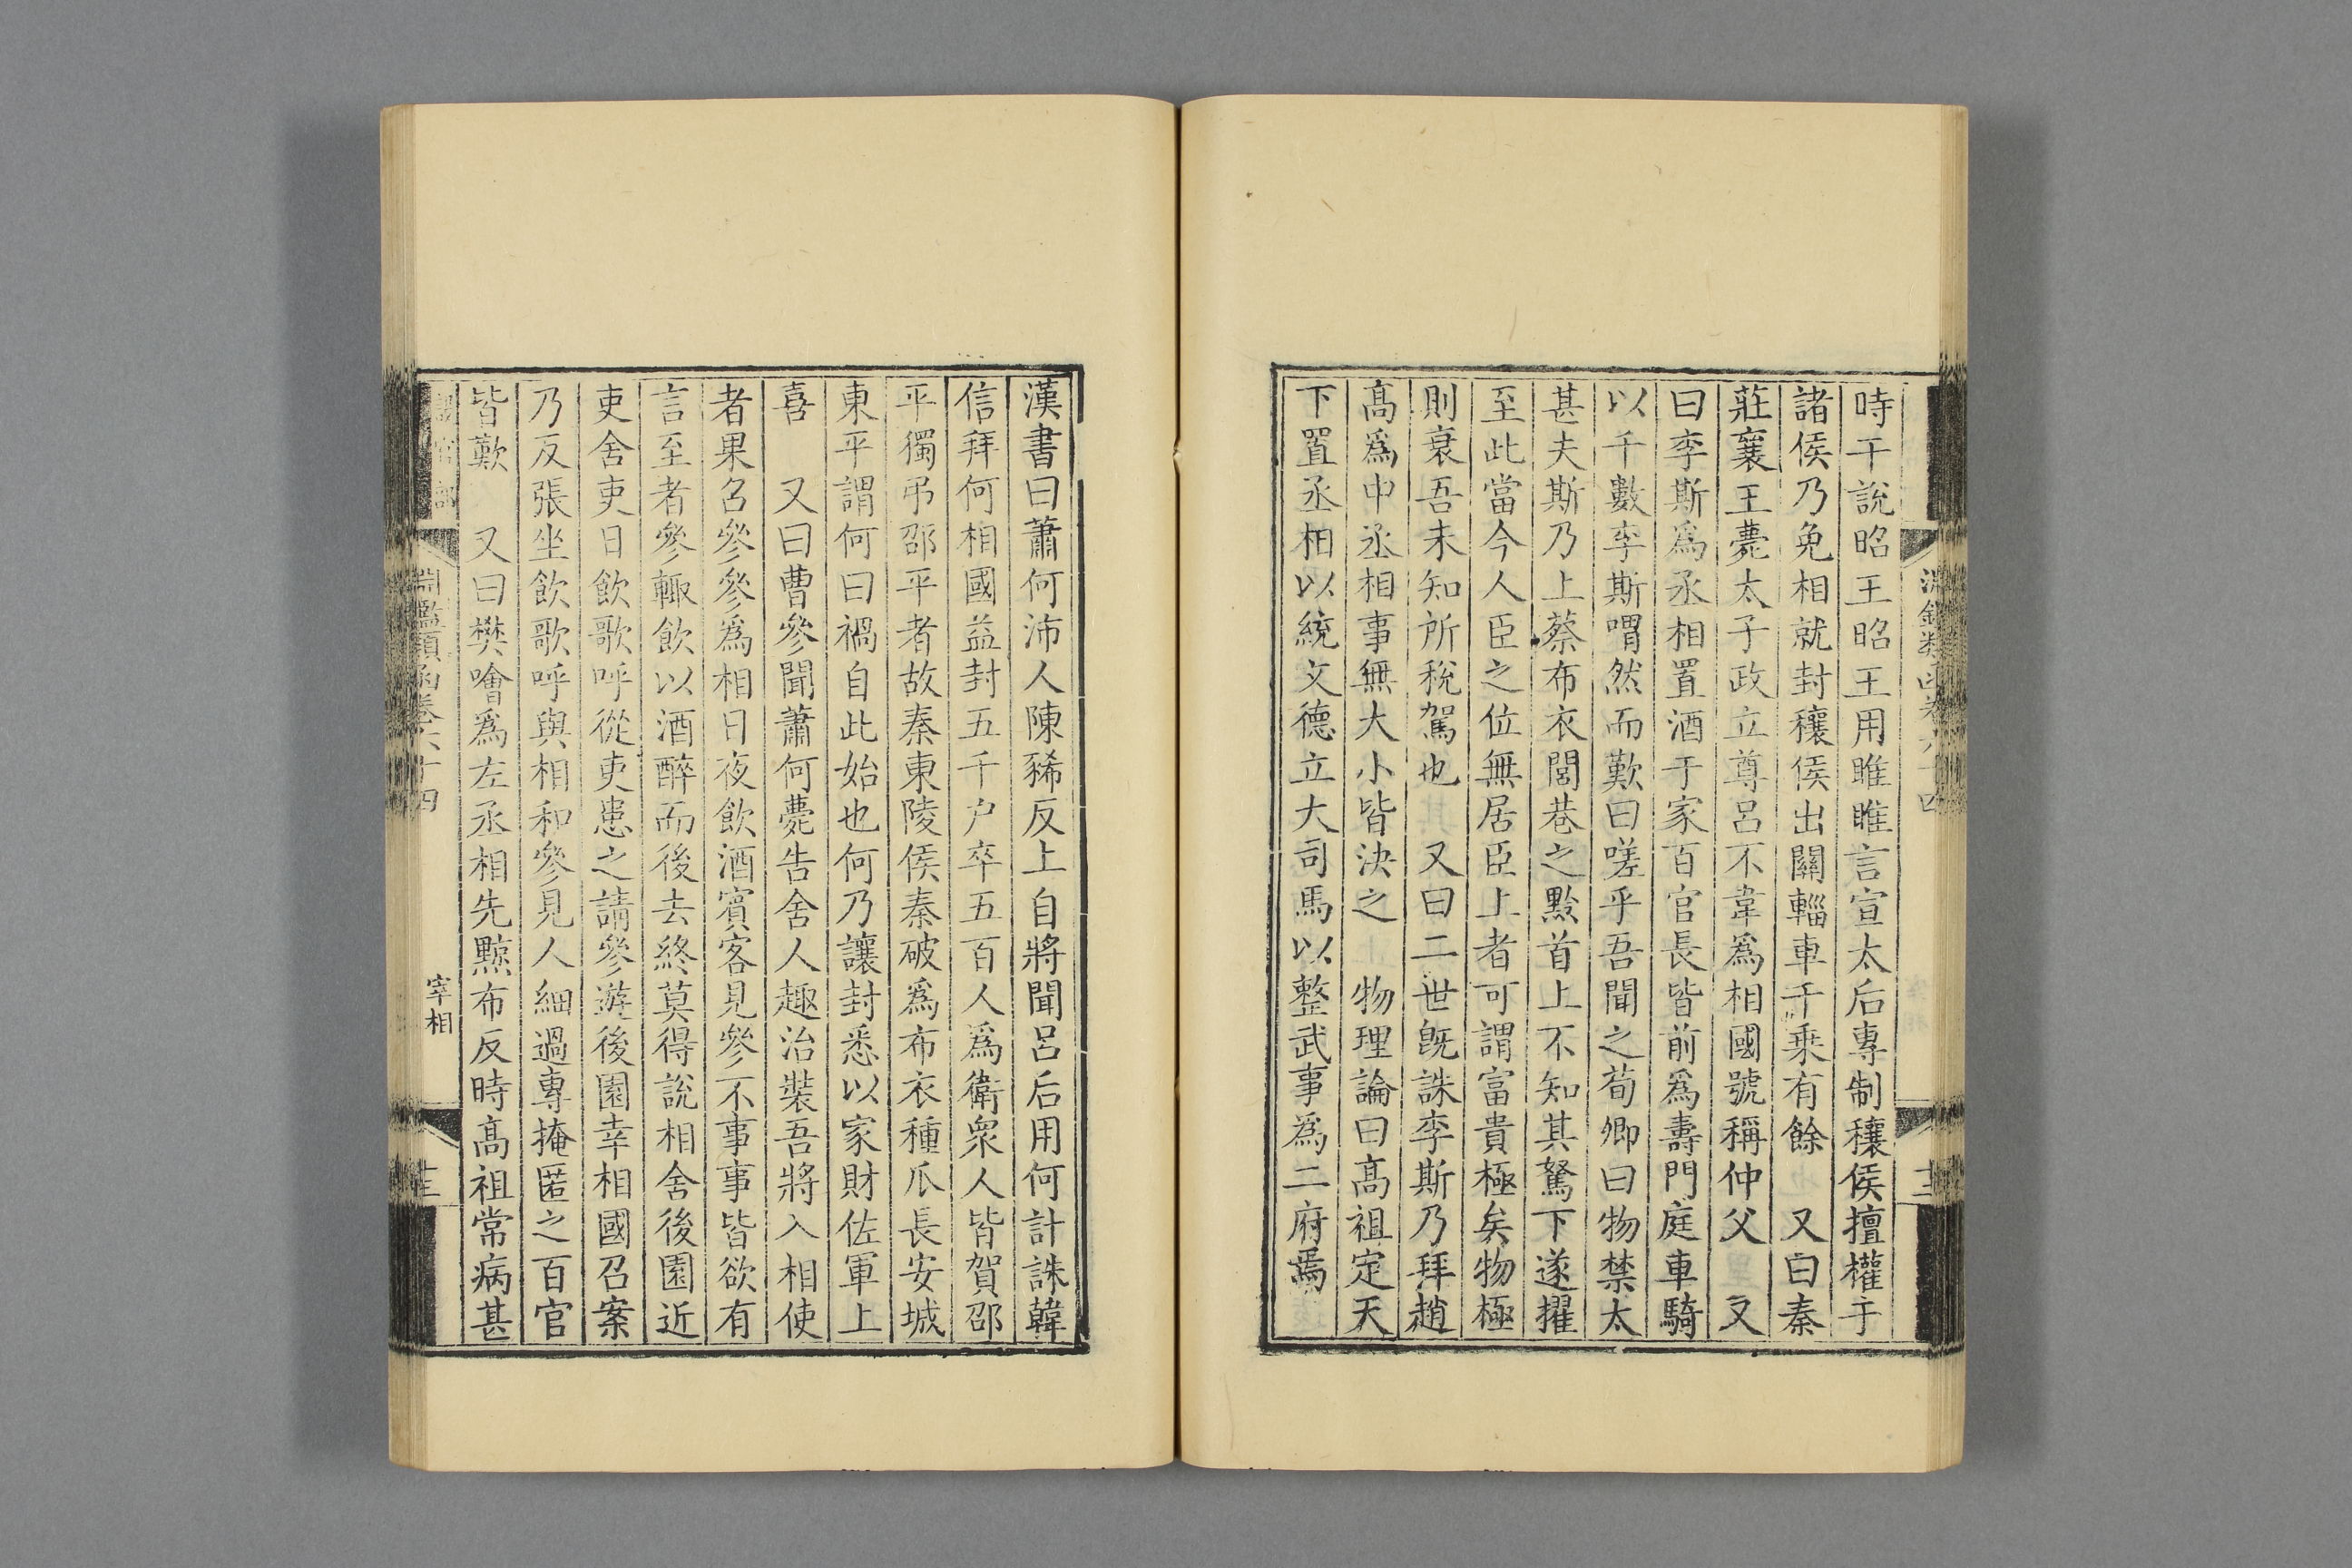 時干說昭王昭王用睢睢言宣太后專制穰侯擅權于
諸侯乃免相就封穰侯出關輜車千乘有餘　又曰秦
莊襄王薨太子政立尊呂不韋爲相國號稱仲父　又
曰李斯爲丞相置酒于家百官長皆前爲壽門庭車騎
以千數李斯喟然而歎曰嗟乎吾聞之荀卿曰物禁太
甚夫斯乃上蔡布衣閭巷之黔首上不知其駑下遂擢
至此當今人臣之位無居臣上者可謂富貴極矣物極
則衰吾未知所稅駕也　又曰二世旣誅李斯乃拜趙
高爲中丞相事無大小皆決之　物理論曰高祖定天
下置丞相以統文德立大司馬以整武事爲二府焉
漢書曰蕭何沛人陳豨反上自將聞呂后用何計誅韓
信拜何相國益封五千户卒五百人爲衛衆人皆賀邵
平獨弔邵平者故秦東陵侯秦破爲布衣種瓜長安城
東平謂何曰禍自此始也何乃讓封悉以家財佐軍上
喜　又曰曹參聞蕭何薨告舍人趣治裝吾將入相使
者果召參參爲相日夜飲酒賓客見參不事事皆欲有
言至者參輒飲以酒醉而後去終莫得說相舍後園近
吏舍吏日飲歌呼從吏患之請參遊後園幸相國召案
乃反張坐飲歌呼與相和參見人細過專掩匿之百官
皆歎　又曰樊噲爲左丞相先黥布反時高祖常病甚
淵鑑類函卷六十四
宰相
十三